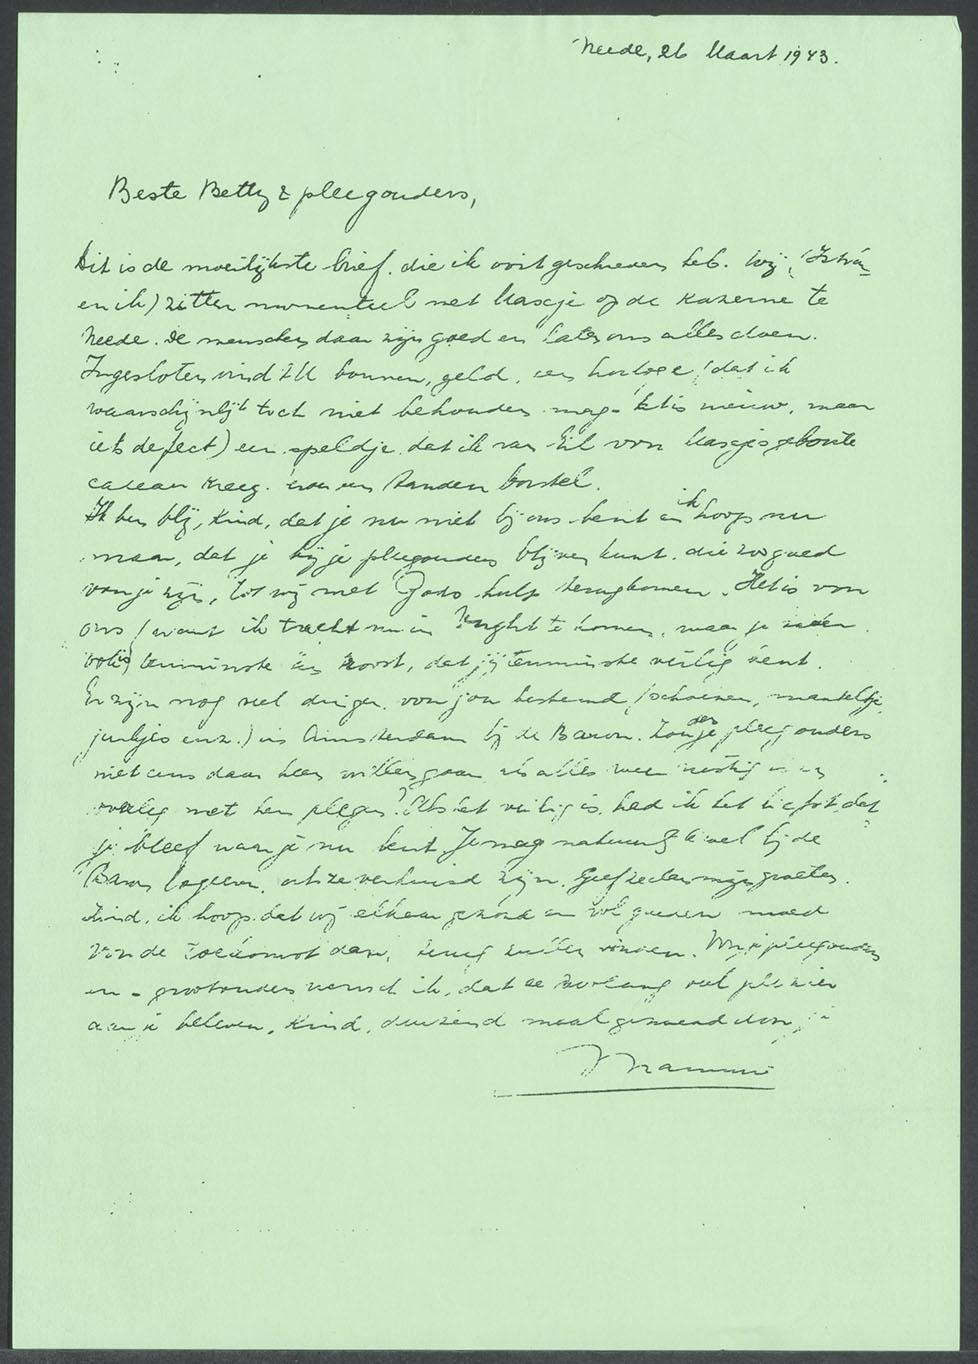 Neede, 26 Maart 1943.
Beste Betty & pleegouders,
Dit is de moeilijkste brief, die ik ooit geschreven heb. Wij, (István
en ik) zitten momenteel met Maxje op de kazerne te
Neede. De menschen daar zijn goed en laten ons alles doen.
Ingesloten vind U bonnen, geld, een horloge (dat ik
waarschijnlijk toch niet behouden mag - 't is nieuw, maar
iets defect) een speldje dat ik van voor Maxjes geboorte
cadeau kreeg. en een tanden borstel.
Ik ben blij, kind, dat je nu niet bij ons bent en ik hoop nu
maar, dat je bij je pleegouders blijven kunt die zoo goed
voor je zijn, tot wij met Gods hulp terugkomen. Het is voor
ons (want ik tracht nu in Vught te komen, waar je
is) tenminste een troost, dat jij tenminste veilig bent.
Er zijn nog veel dingen voor jou bestemd, (schoenen, manteltje
jurkjes enz.) in Amsterdam bij de Baron. Zouden je pleegouders
niet eens daar heen willen gaan en alles wat noodig is en
overleg met hen plegen? Als het veilig is, had ik het liefst dat
je bleef waar je nu bent. Je mag natuurlijk wel bij de
Baron logeeren, als ze verhuisd zijn. Geef ze den mijn groeten.
Kind, ik hoop dat wij elkaar gezond en vol goeden moed
voor de toekomst dan, terug zullen vinden. Voor je pleegouders
en - grootouders wensch ik, dat ze zoolang veel plezier
aan je beleven, Kind, duizend maal gezoend door je
Mammie